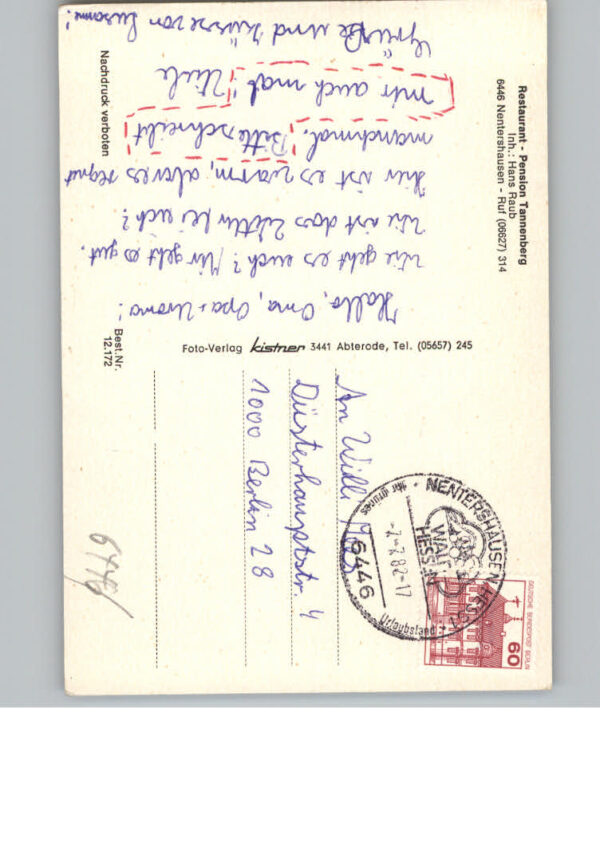 Restaurant - Pension Tannenberg
Inh.: Hans Raub
6446 Nentershausen - Ruf (06627) 314
Hallo, Oma, Opa + Uroma!
Wie geht es euch? Mir geht es gut.
Wie ist das Wetter bei euch?
Hier ist es warm, aber es regnet
manchmal. Bitte schreibt
mir auch mal! Viele
Grüße und Küsse von Susanne!
Nachdruck verboten
Best.Nr.
12.172
Foto-Verlag kistner 3441 Abterode, Tel. (05657) 245
An Willi
Düsterhauptstr. 4
1000 Berlin 28
NENTERSHAUSEN, HESS
WALD
HESSEN
-7.-7.82-17
6446
Ihr grünes
Urlaubsland
DEUTSCHE BUNDESPOST BERLIN
60
6446